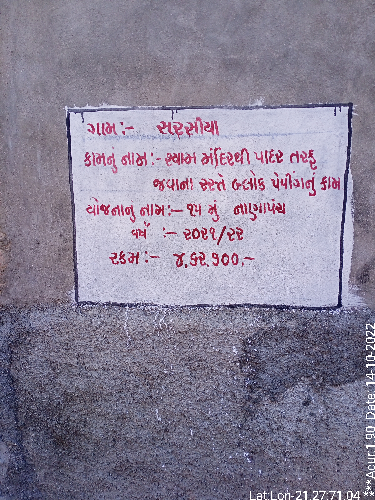 ગામ:- સરસીયા
કામનુ નામ:- શ્યામ મંદિરથી પાદર તરફ
જવાના રસ્તે બ્લોક પેવીંગનું કામ
યોજનાનુ નામ:- ૧૫ મું નાણાપંચ
વર્ષ :- ૨૦૨૧/૨૨
રકમ:- ૪,૬૨,૧૦૦.-
Lat:Lon-21.27:71.04
***Acur:1.90 Date: 14-10-2022